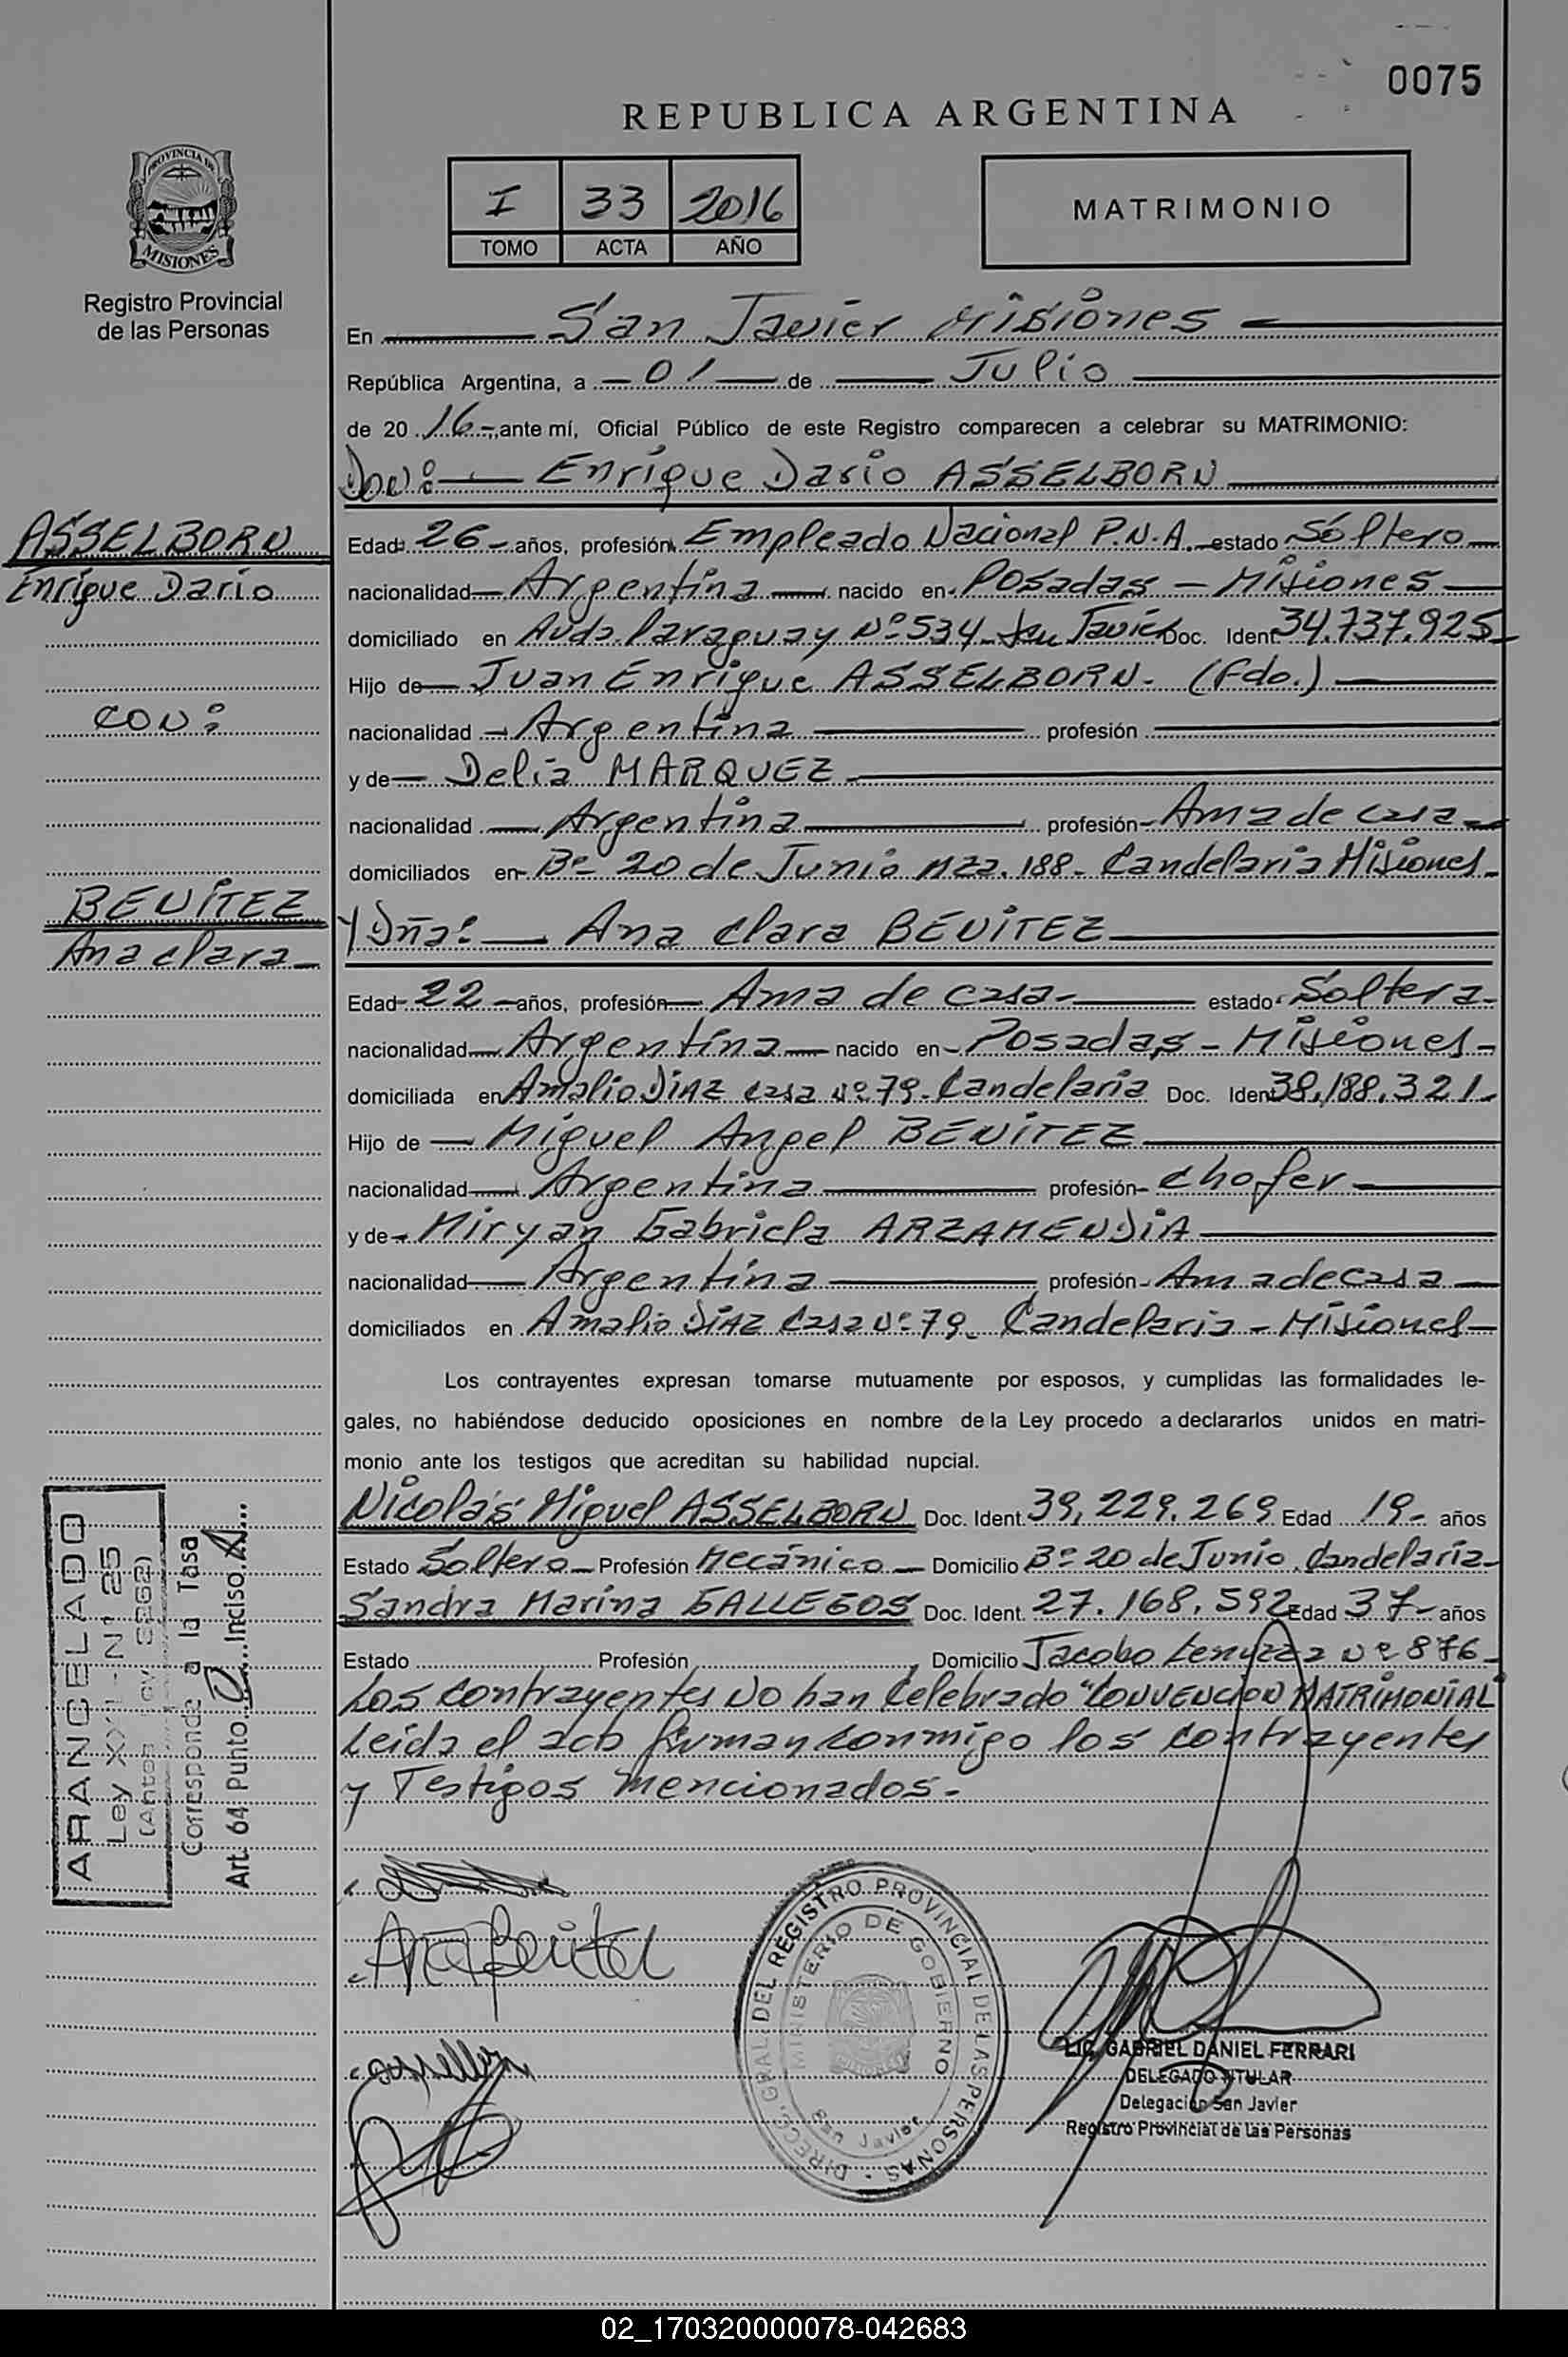 0075
REPUBLICA ARGENTINA
PROVINCIA DE
MISIONES
Registro Provincial
de las Personas
I 33 2016
TOMO ACTA AÑO
MATRIMONIO
En San Javier Misiones
República Argentina, a 01 de Julio
de 20 16 ante mí, Oficial Público de este Registro comparecen a celebrar su MATRIMONIO:
Don: Enrique Dario ASSELBORN
ASSELBORN
Enrique Dario
Edad: 26 años, profesión Empleado Nacional P.N.A. estado Soltero
nacionalidad Argentina nacido en Posadas - Misiones
domiciliado en Avda. Paraguay Nº 534 San Javier Doc. Ident 34.737.925
Hijo de Juan Enrique ASSELBORN. (Fdo.)
con:
nacionalidad Argentina profesión
y de Delia MARQUEZ
nacionalidad Argentina profesión Ama de casa
domiciliados en Bº 20 de Junio Mza. 188 - Candelaria Misiones
BENITEZ
Ana clara
Y Dña: Ana Clara BENITEZ
Edad 22 años, profesión Ama de casa estado Soltera
nacionalidad Argentina nacido en Posadas - Misiones
domiciliada en Amalio DIAZ casa Nº 79 - Candelaria Doc. Ident 38.188.321
Hijo de Miguel Angel BENITEZ
nacionalidad Argentina profesión chofer
y de Miryan Gabriela ARZAMENDIA
nacionalidad Argentina profesión Ama de casa
domiciliados en Amalio DIAZ Casa Nº 79 Candelaria - Misiones
Los contrayentes expresan tomarse mutuamente por esposos, y cumplidas las formalidades le-
gales, no habiéndose deducido oposiciones en nombre de la Ley procedo a declararlos unidos en matri-
monio ante los testigos que acreditan su habilidad nupcial.
Nicolás Miguel ASSELBORN Doc. Ident. 39,229.269 Edad 19 años
Estado Soltero Profesión Mecánico Domicilio Bº 20 de Junio Candelaria
Sandra Marina GALLEGOS Doc. Ident. 27.168.592 Edad 37 años
Estado Profesión Domicilio Jacobo Nº 876
Los contrayentes No han Celebrado "CONVENCION MATRIMONIAL"
Leida el acto firman conmigo los contrayentes
y Testigos mencionados.
ARANCELADO
Ley XXII - Nº 25
(Antes Ley 3262)
Corresponde a la Tasa
Art. 64 Punto Inciso
Ana Benitez
DIREC. GRAL. DEL REGISTRO PROVINCIAL DE LAS PERSONAS
MINISTERIO DE GOBIERNO
San Javier
LIC. GABRIEL DANIEL FERRARI
DELEGADO TITULAR
Delegación San Javier
Registro Provincial de las Personas
02_170320000078-042683